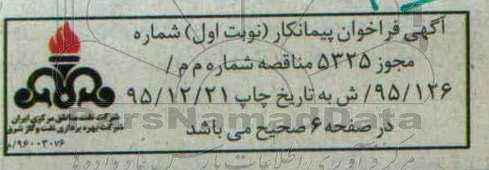 آگهی فراخوان پیمانکار (نوبت اول) شماره
مجوز ۵۳۲۵ مناقصه شماره م م /
۹۵/۱۲۶/ ش به تاریخ چاپ ۹۵/۱۲/۲۱
در صفحه ۶ صحیح می باشد
شرکت نفت مناطق مرکزی ایران
شرکت بهره برداری نفت و گاز شرق
۸/۹۶۰۰۳۰۷۶
ParsNamadData